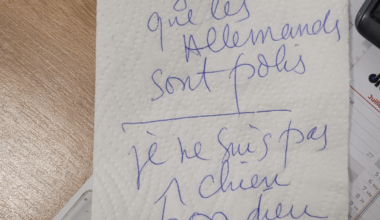 que les
Allemands
sont polis
je ne suis pas
1 chien
bon dieu
Juille